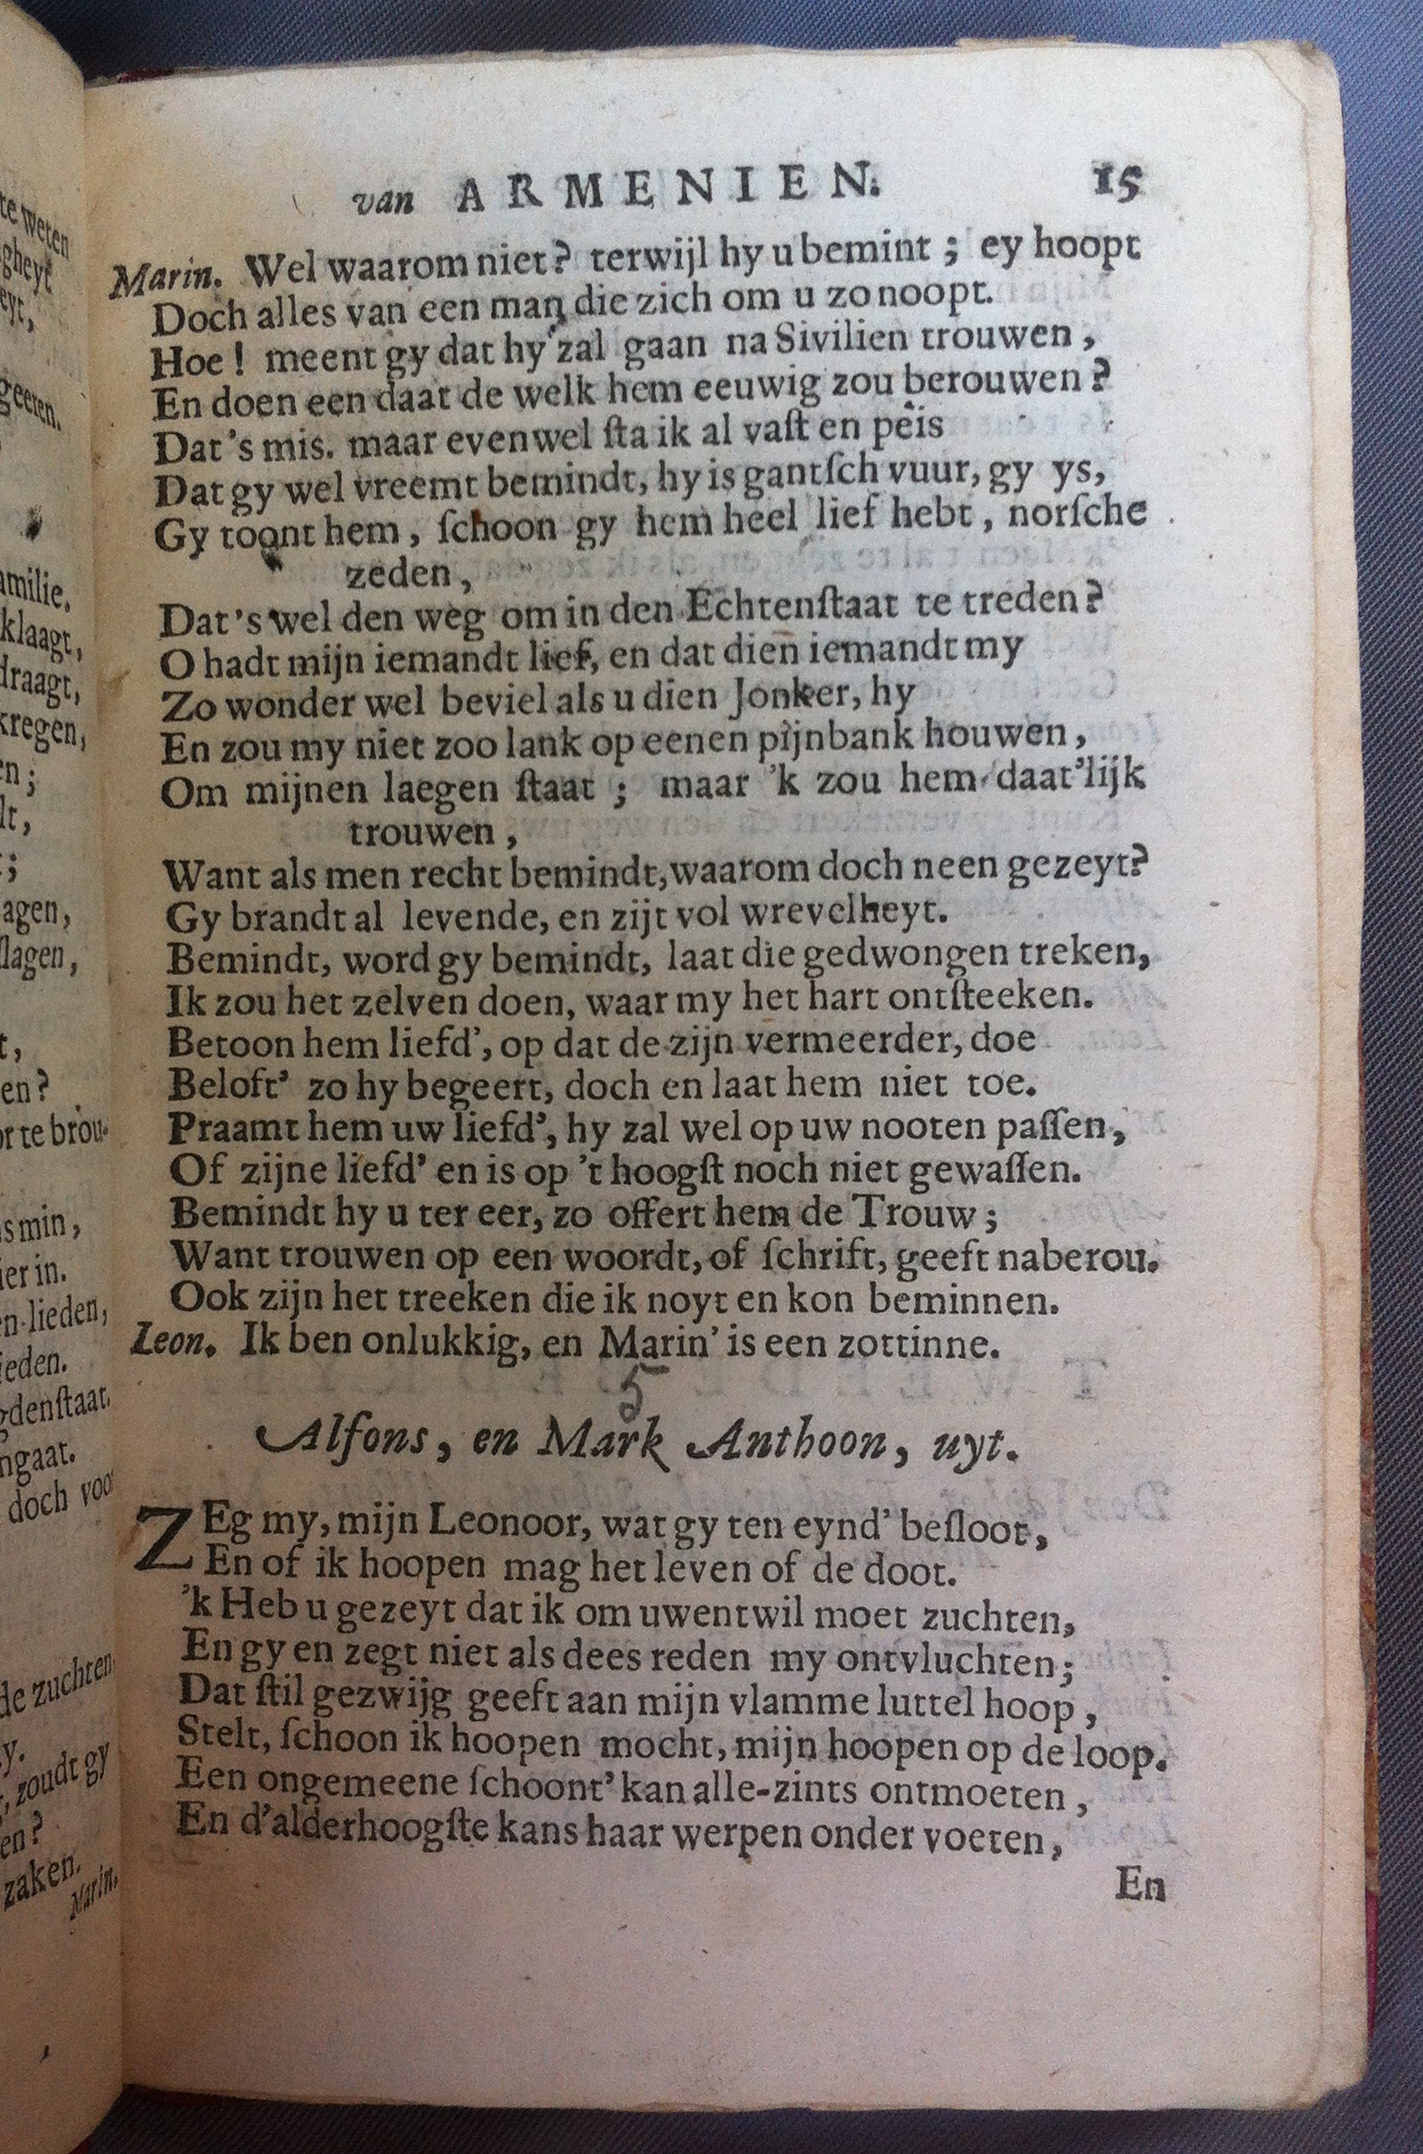 van ARMENIEN. 15
Marin. Wel waarom niet? terwijl hy u bemint ; ey hoopt
Doch alles van een man die zich om u zo noopt.
Hoe! meent gy dat hy zal gaan na Sivilien trouwen,
En doen een daat de welk hem eeuwig zou berouwen?
Dat's mis. maar evenwel ſta ik al vaſt en peis
Dat gy wel vreemt bemindt, hy is gantſch vuur, gy ys,
Gy toont hem, ſchoon gy hem heel lief hebt, norſche
zeden,
Dat's wel den weg om in den Echtenſtaat te treden?
O hadt mijn iemandt lief, en dat dien iemandt my
Zo wonder wel beviel als u dien Jonker, hy
En zou my niet zoo lank op eenen pijnbank houwen,
Om mijnen laegen ſtaat ; maar 'k zou hem daat'lijk
trouwen,
Want als men recht bemindt, waarom doch neen gezeyt?
Gy brandt al levende, en zijt vol wrevelheyt.
Bemindt, word gy bemindt, laat die gedwongen treken,
Ik zou het zelven doen, waar my het hart ontſteeken.
Betoon hem liefd', op dat de zijn vermeerder, doe
Beloft' zo hy begeert, doch en laat hem niet toe.
Praamt hem uw liefd', hy zal wel op uw nooten paſſen,
Of zijne liefd' en is op 't hoogſt noch niet gewaſſen.
Bemindt hy u ter eer, zo offert hem de Trouw;
Want trouwen op een woordt, of ſchrift, geeft naberou.
Ook zijn het treeken die ik noyt en kon beminnen.
Leon. Ik ben onlukkig, en Marin' is een zottinne.
5
Alfons, en Mark Anthoon, uyt.
ZEg my, mijn Leonoor, wat gy ten eynd' beſloot,
En of ik hoopen mag het leven of de doot.
'k Heb u gezeyt dat ik om uwent wil moet zuchten,
En gy en zegt niet als dees reden my ontvluchten;
Dat ſtil gezwijg geeft aan mijn vlamme luttel hoop,
Stelt, ſchoon ik hoopen mocht, mijn hoopen op de loop.
Een ongemeene ſchoont' kan alle-zints ontmoeten,
En d'alderhoogſte kans haar werpen onder voeten,
En